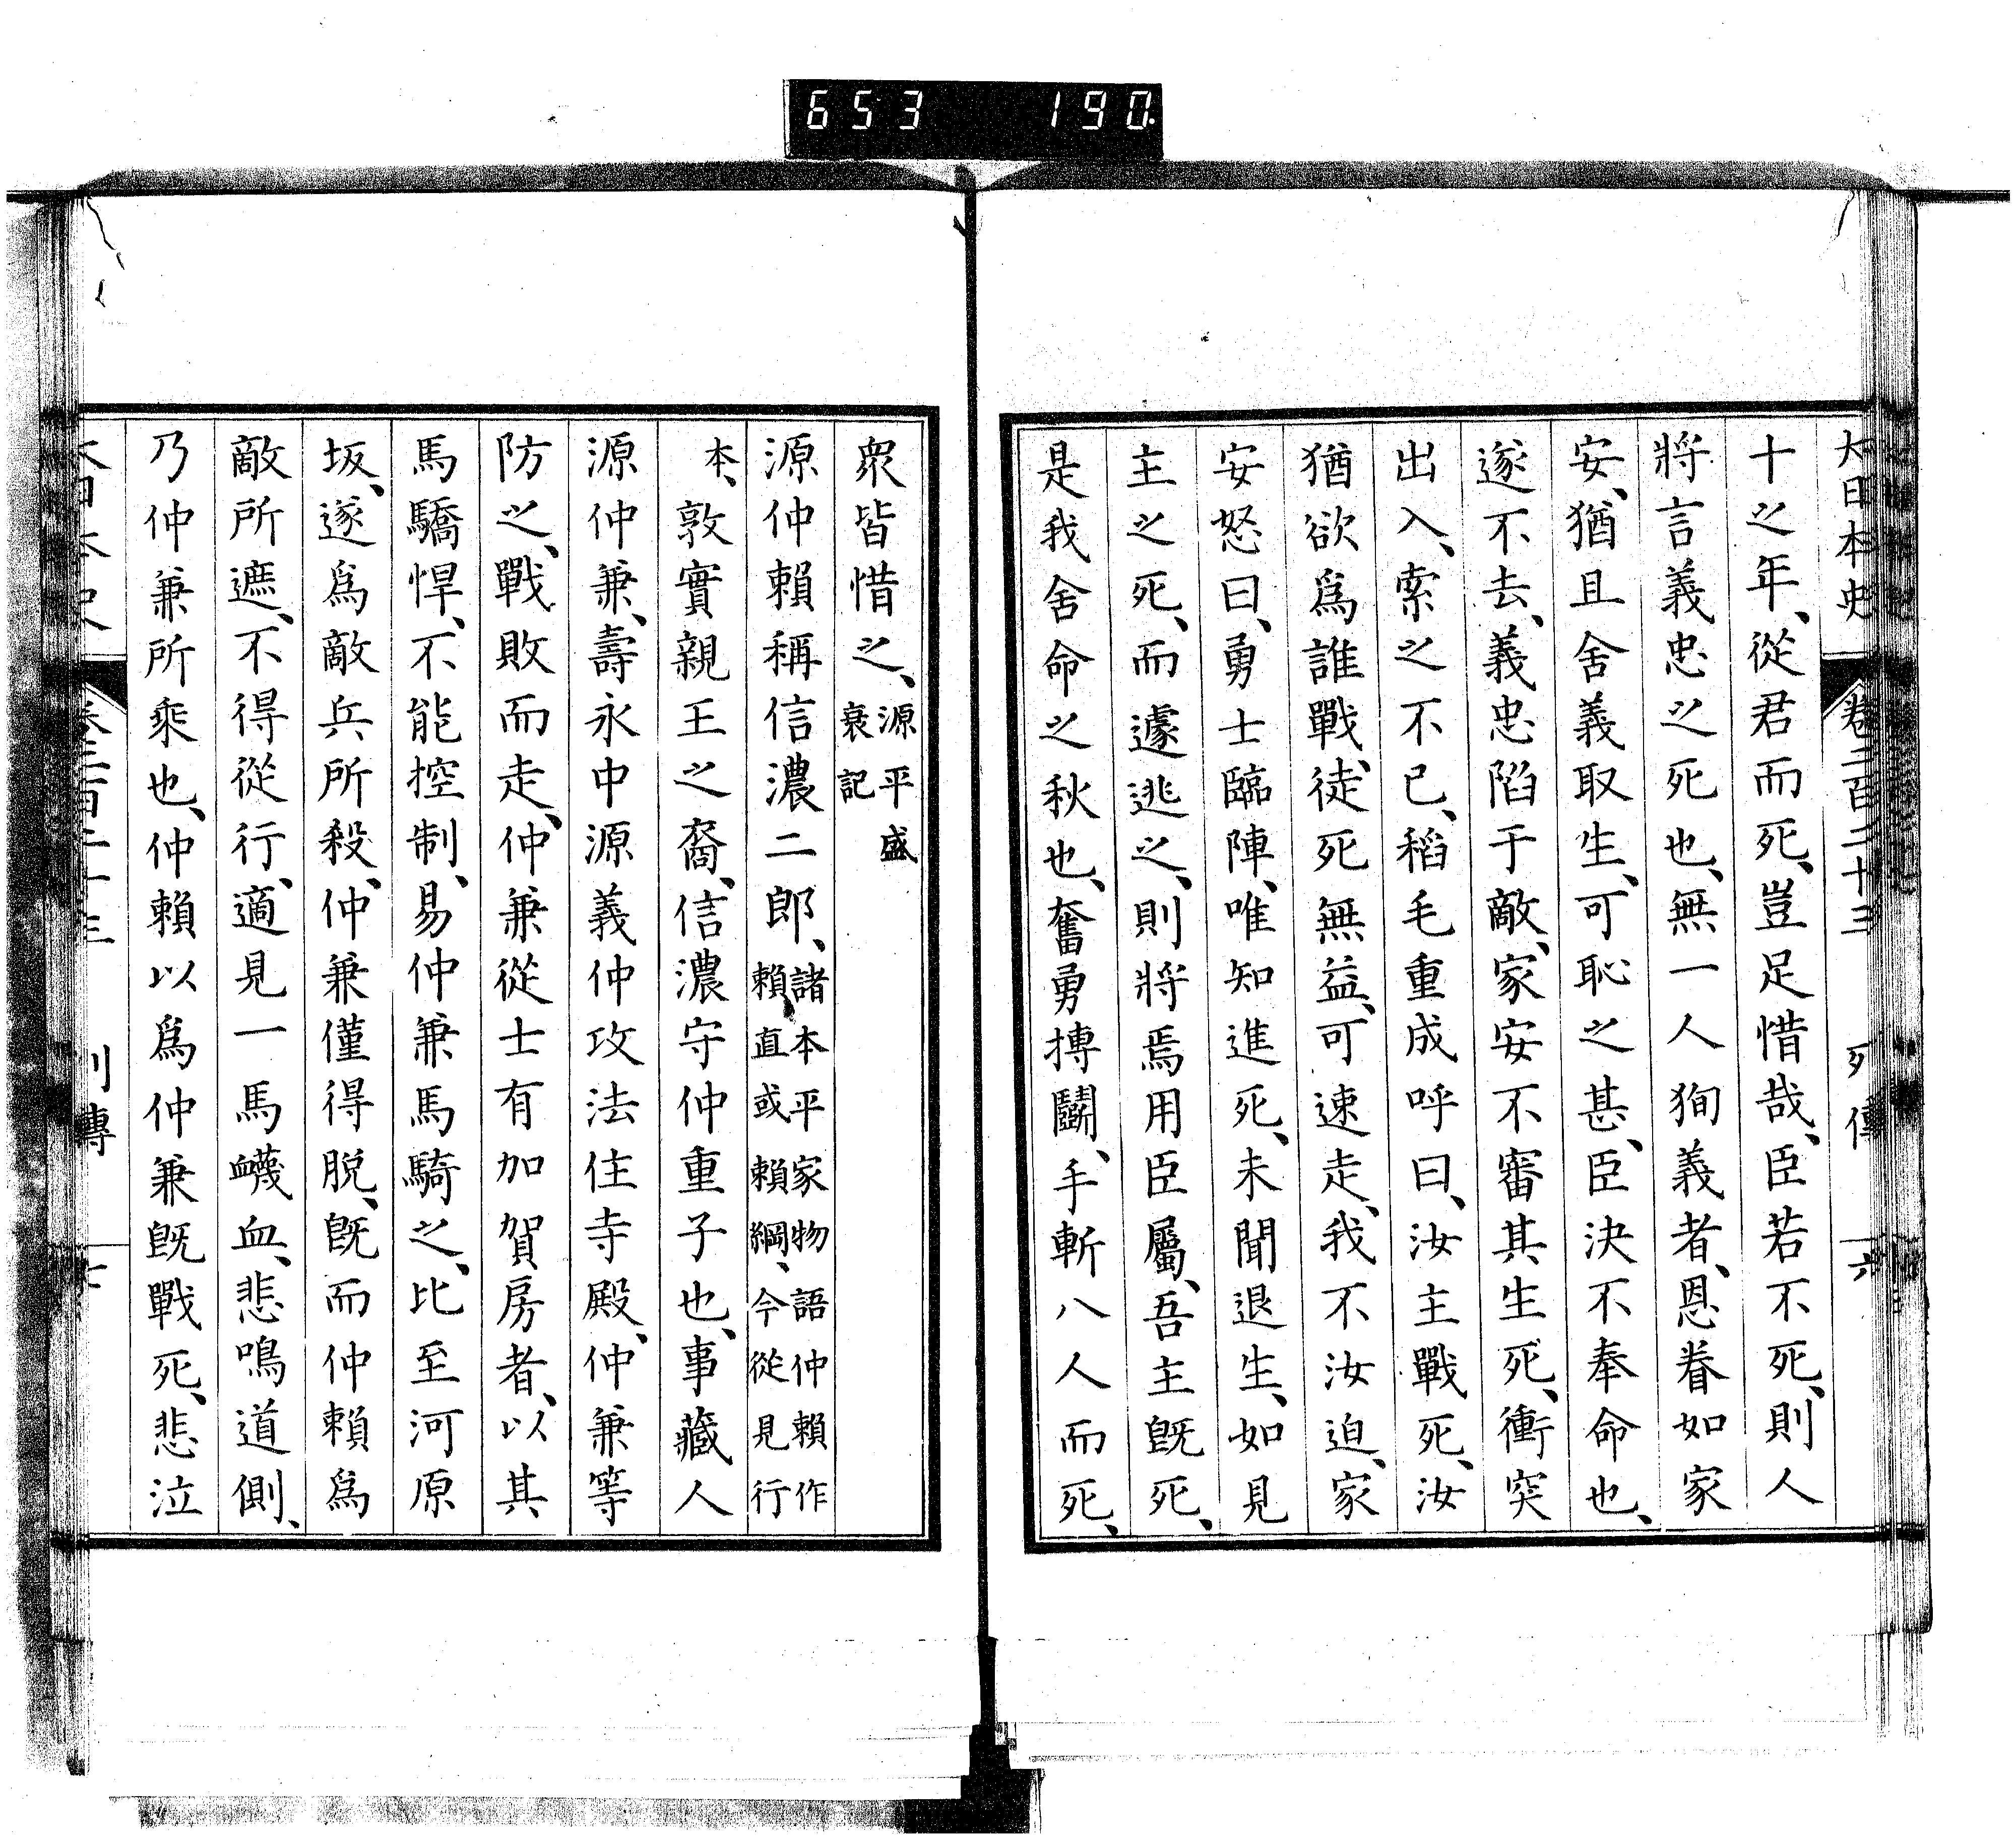 653 190.
大日本史 卷二百二十三 列傳 六
十之年、從君而死、豈足惜哉、臣若不死、則人
將言義忠之死也、無一人狥義者、恩眷如家
安、猶且舍義取生、可恥之甚、臣決不奉命也、
遂不去、義忠陷于敵、家安不審其生死、衝突
出入、索之不已、稻毛重成呼曰、汝主戰死、汝
猶欲爲誰戰、徒死無益、可速走、我不汝迫、家
安怒曰、勇士臨陣、唯知進死、未聞退生、如見
主之死、而遽逃之、則將焉用臣屬、吾主旣死、
是我舍命之秋也、奮勇搏鬭、手斬八人而死、
衆皆惜之、源平盛
衰記
源仲賴稱信濃二郎、諸本平家物語仲賴作
賴直或賴綱、今從見行
本、敦實親王之裔、信濃守仲重子也、事藏人
源仲兼、壽永中源義仲攻法住寺殿、仲兼等
防之、戰敗而走、仲兼從士有加賀房者、以其
馬驕悍、不能控制、易仲兼馬騎之、比至河原
坂、遂爲敵兵所殺、仲兼僅得脫、旣而仲賴爲
敵所遮、不得從行、適見一馬衊血、悲鳴道側、
乃仲兼所乘也、仲賴以爲仲兼旣戰死、悲泣
大日本史 卷二百二十三 列傳 七